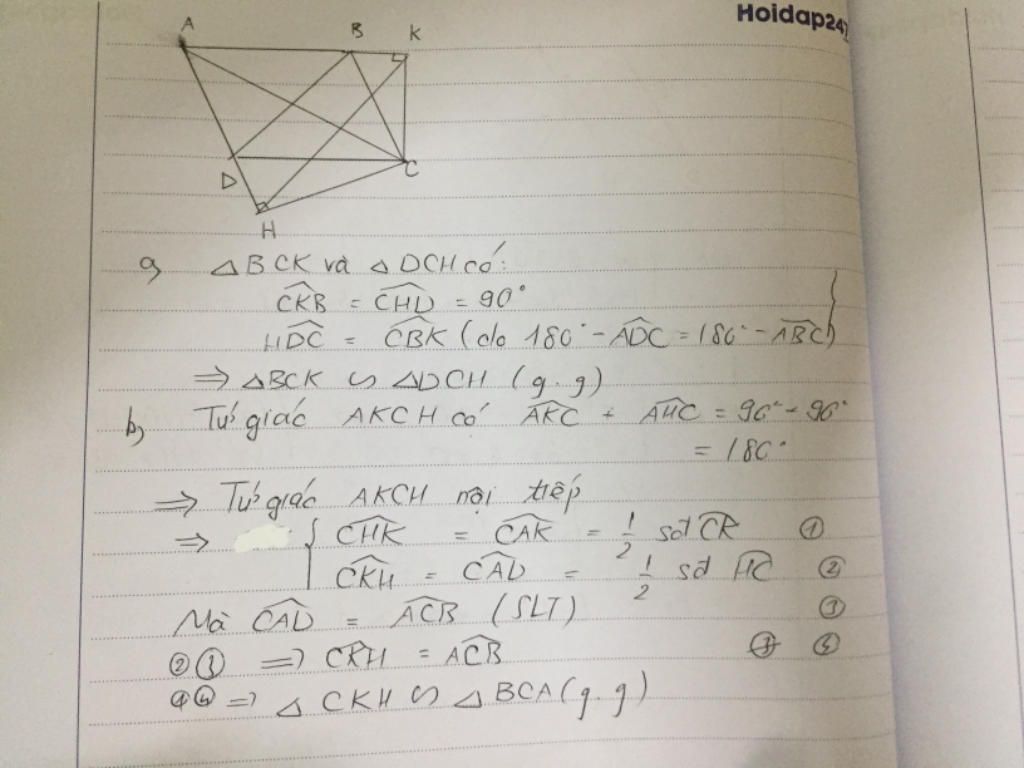 Hoidap247
A
B
K
D
C
H
a, △BCK và △DCH có:
\widehat{CKB} = \widehat{CHD} = 90°
\widehat{HDC} = \widehat{CBK} (do 180° - \widehat{ADC} = 180° - \widehat{ABC})
⇒ △BCK ∽ △DCH (g.g)
b, Tứ giác AKCH có \widehat{AKC} + \widehat{AHC} = 90° + 90°
= 180°
⇒ Tứ giác AKCH nội tiếp
⇒ { \widehat{CHK} = \widehat{CAK} = 1/2 sđ \widehat{CK} ①
\widehat{CKH} = \widehat{CAD} = 1/2 sđ \widehat{HC} ②
Mà \widehat{CAD} = \widehat{ACB} (SLT) ③
②③ ⇒ \widehat{CKH} = \widehat{ACB} ④
①④ ⇒ △CKH ∽ △BCA (g.g)